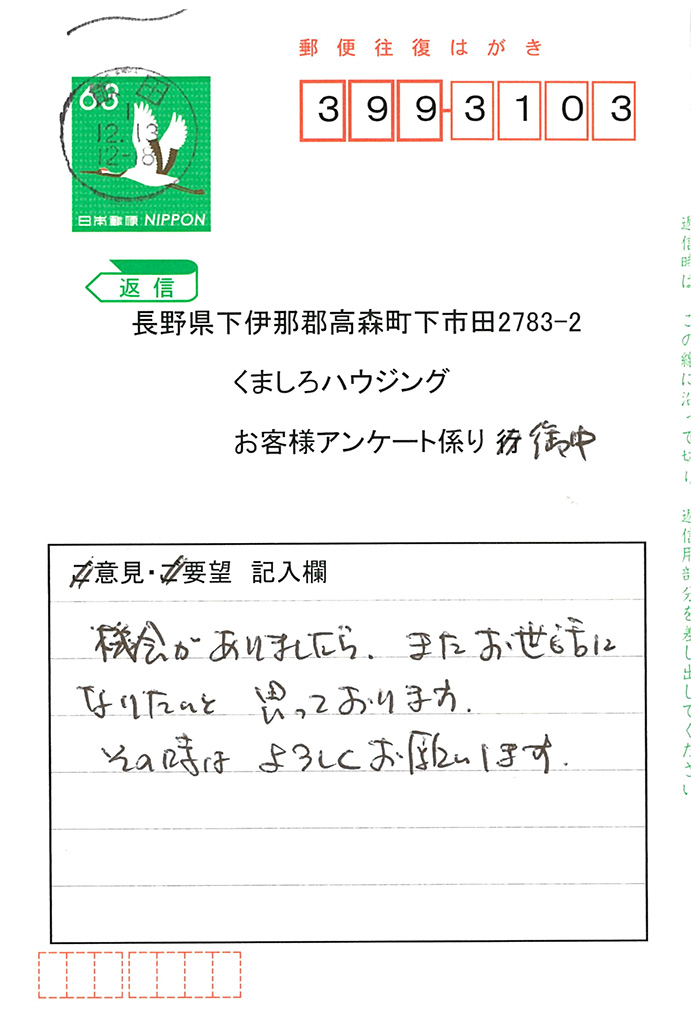 郵便往復はがき
399-3103
63
12.13
12-18
日本郵便 NIPPON
返信
長野県下伊那郡高森町下市田2783-2
くましろハウジング
お客様アンケート係り 行 御中
ご意見・ご要望 記入欄
機会がありましたら、またお世話に
なりたいと 思っております。
その時は よろしくお願いします。
返信時は、この線に沿って切り、返信用部分を差し出してください